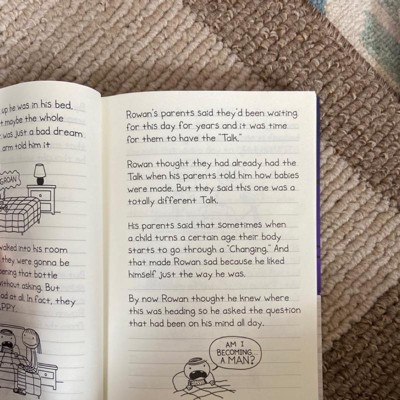 up he was in his bed,
maybe the whole
was just a bad dream
arm told him it
GROAN
walked into his room
they were gonna be
that bottle
without asking. But
at all. In fact, they
Rowan's parents said they'd been waiting
for this day for years and it was time
for them to have the "Talk."
Rowan thought they had already had the
Talk when his parents told him how babies
were made. But they said this one was a
totally different Talk.
His parents said that sometimes when
a child turns a certain age their body
starts to go through a "Changing." And
that made Rowan sad because he liked
himself just the way he was.
By now Rowan thought he knew where
this was heading so he asked the question
that had been on his mind all day.
AM I
BECOMING
A MAN?